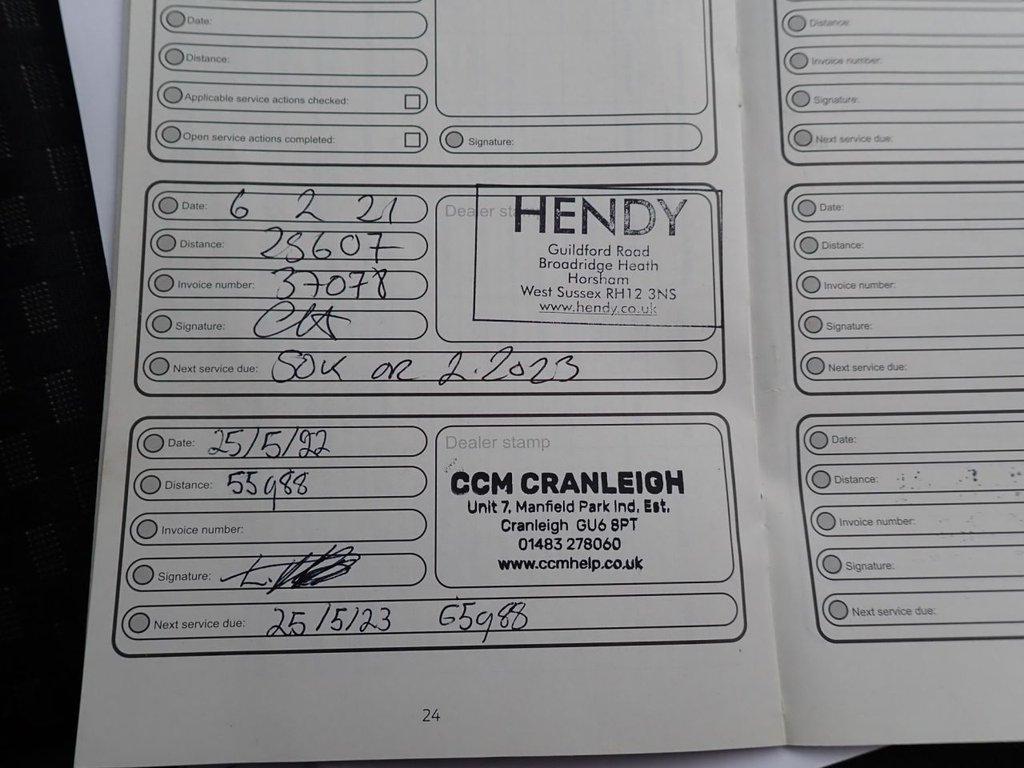 Date:
Distance:
Applicable service actions checked:
Open service actions completed:
Signature:
Date: 6 2 21
Distance: 28607
Invoice number: 37078
Signature:
Next service due: 50K OR 2.2023
Dealer
HENDY
Guildford Road
Broadridge Heath
Horsham
West Sussex RH12 3NS
www.hendy.co.uk
Date: 25/5/22
Distance: 55988
Invoice number:
Signature:
Next service due: 25/5/23 65988
Dealer stamp
CCM CRANLEIGH
Unit 7, Manfield Park Ind. Est.
Cranleigh GU6 8PT
01483 278060
www.ccmhelp.co.uk
24
Distance:
Invoice number:
Signature:
Next service due:
Date:
Distance:
Invoice number:
Signature:
Next service due:
Date:
Distance:
Invoice number:
Signature:
Next service due: